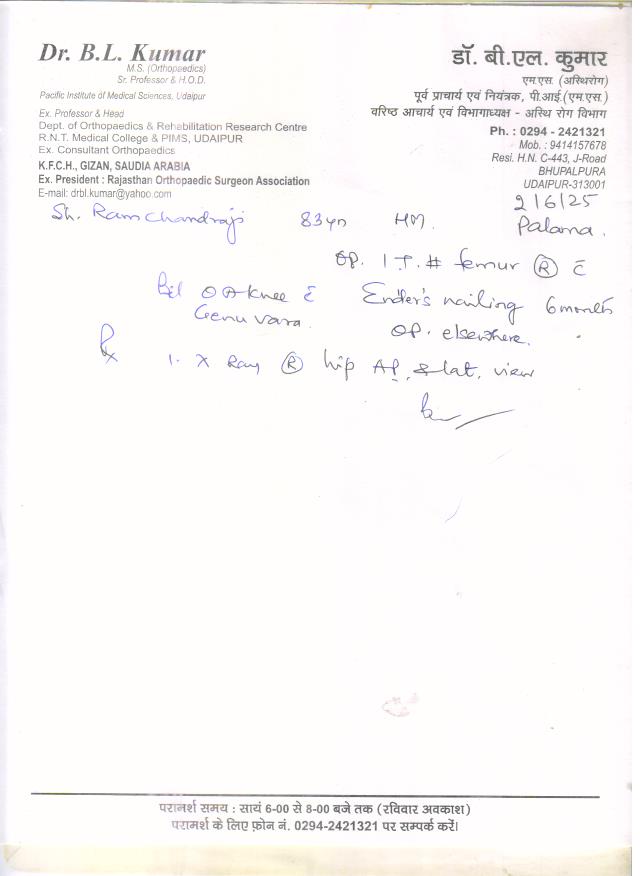 Dr. B.L. Kumar
M.S. (Orthopaedics)
Sr. Professor & H.O.D.
Pacific Institute of Medical Sciences, Udaipur
Ex. Professor & Head
Dept. of Orthopaedics & Rehabilitation Research Centre
R.N.T. Medical College & PIMS, UDAIPUR
Ex. Consultant Orthopaedics
K.F.C.H., GIZAN, SAUDIA ARABIA
Ex. President : Rajasthan Orthopaedic Surgeon Association
E-mail: drbl.kumar@yahoo.com
डॉ. बी.एल. कुमार
एम.एस. (अस्थिरोग)
पूर्व प्राचार्य एवं नियंत्रक, पी.आई.(एम.एस.)
वरिष्ठ आचार्य एवं विभागाध्यक्ष - अस्थि रोग विभाग
Ph. : 0294 - 2421321
Mob. : 9414157678
Resi. H.N. C-443, J-Road
BHUPALPURA
UDAIPUR-313001
2/6/25
Sh. Ram Chandraji 83yr HM.
Palana.
OP. I.T. # femur (R) c̄
Bil OA knee c̄ Ender's nailing 6 month
Genu vara. OP. elsewhere.
Rx 1. X Ray (R) hip AP. & lat. view
परामर्श समय : सायं 6-00 से 8-00 बजे तक (रविवार अवकाश)
परामर्श के लिए फ़ोन नं. 0294-2421321 पर सम्पर्क करें।